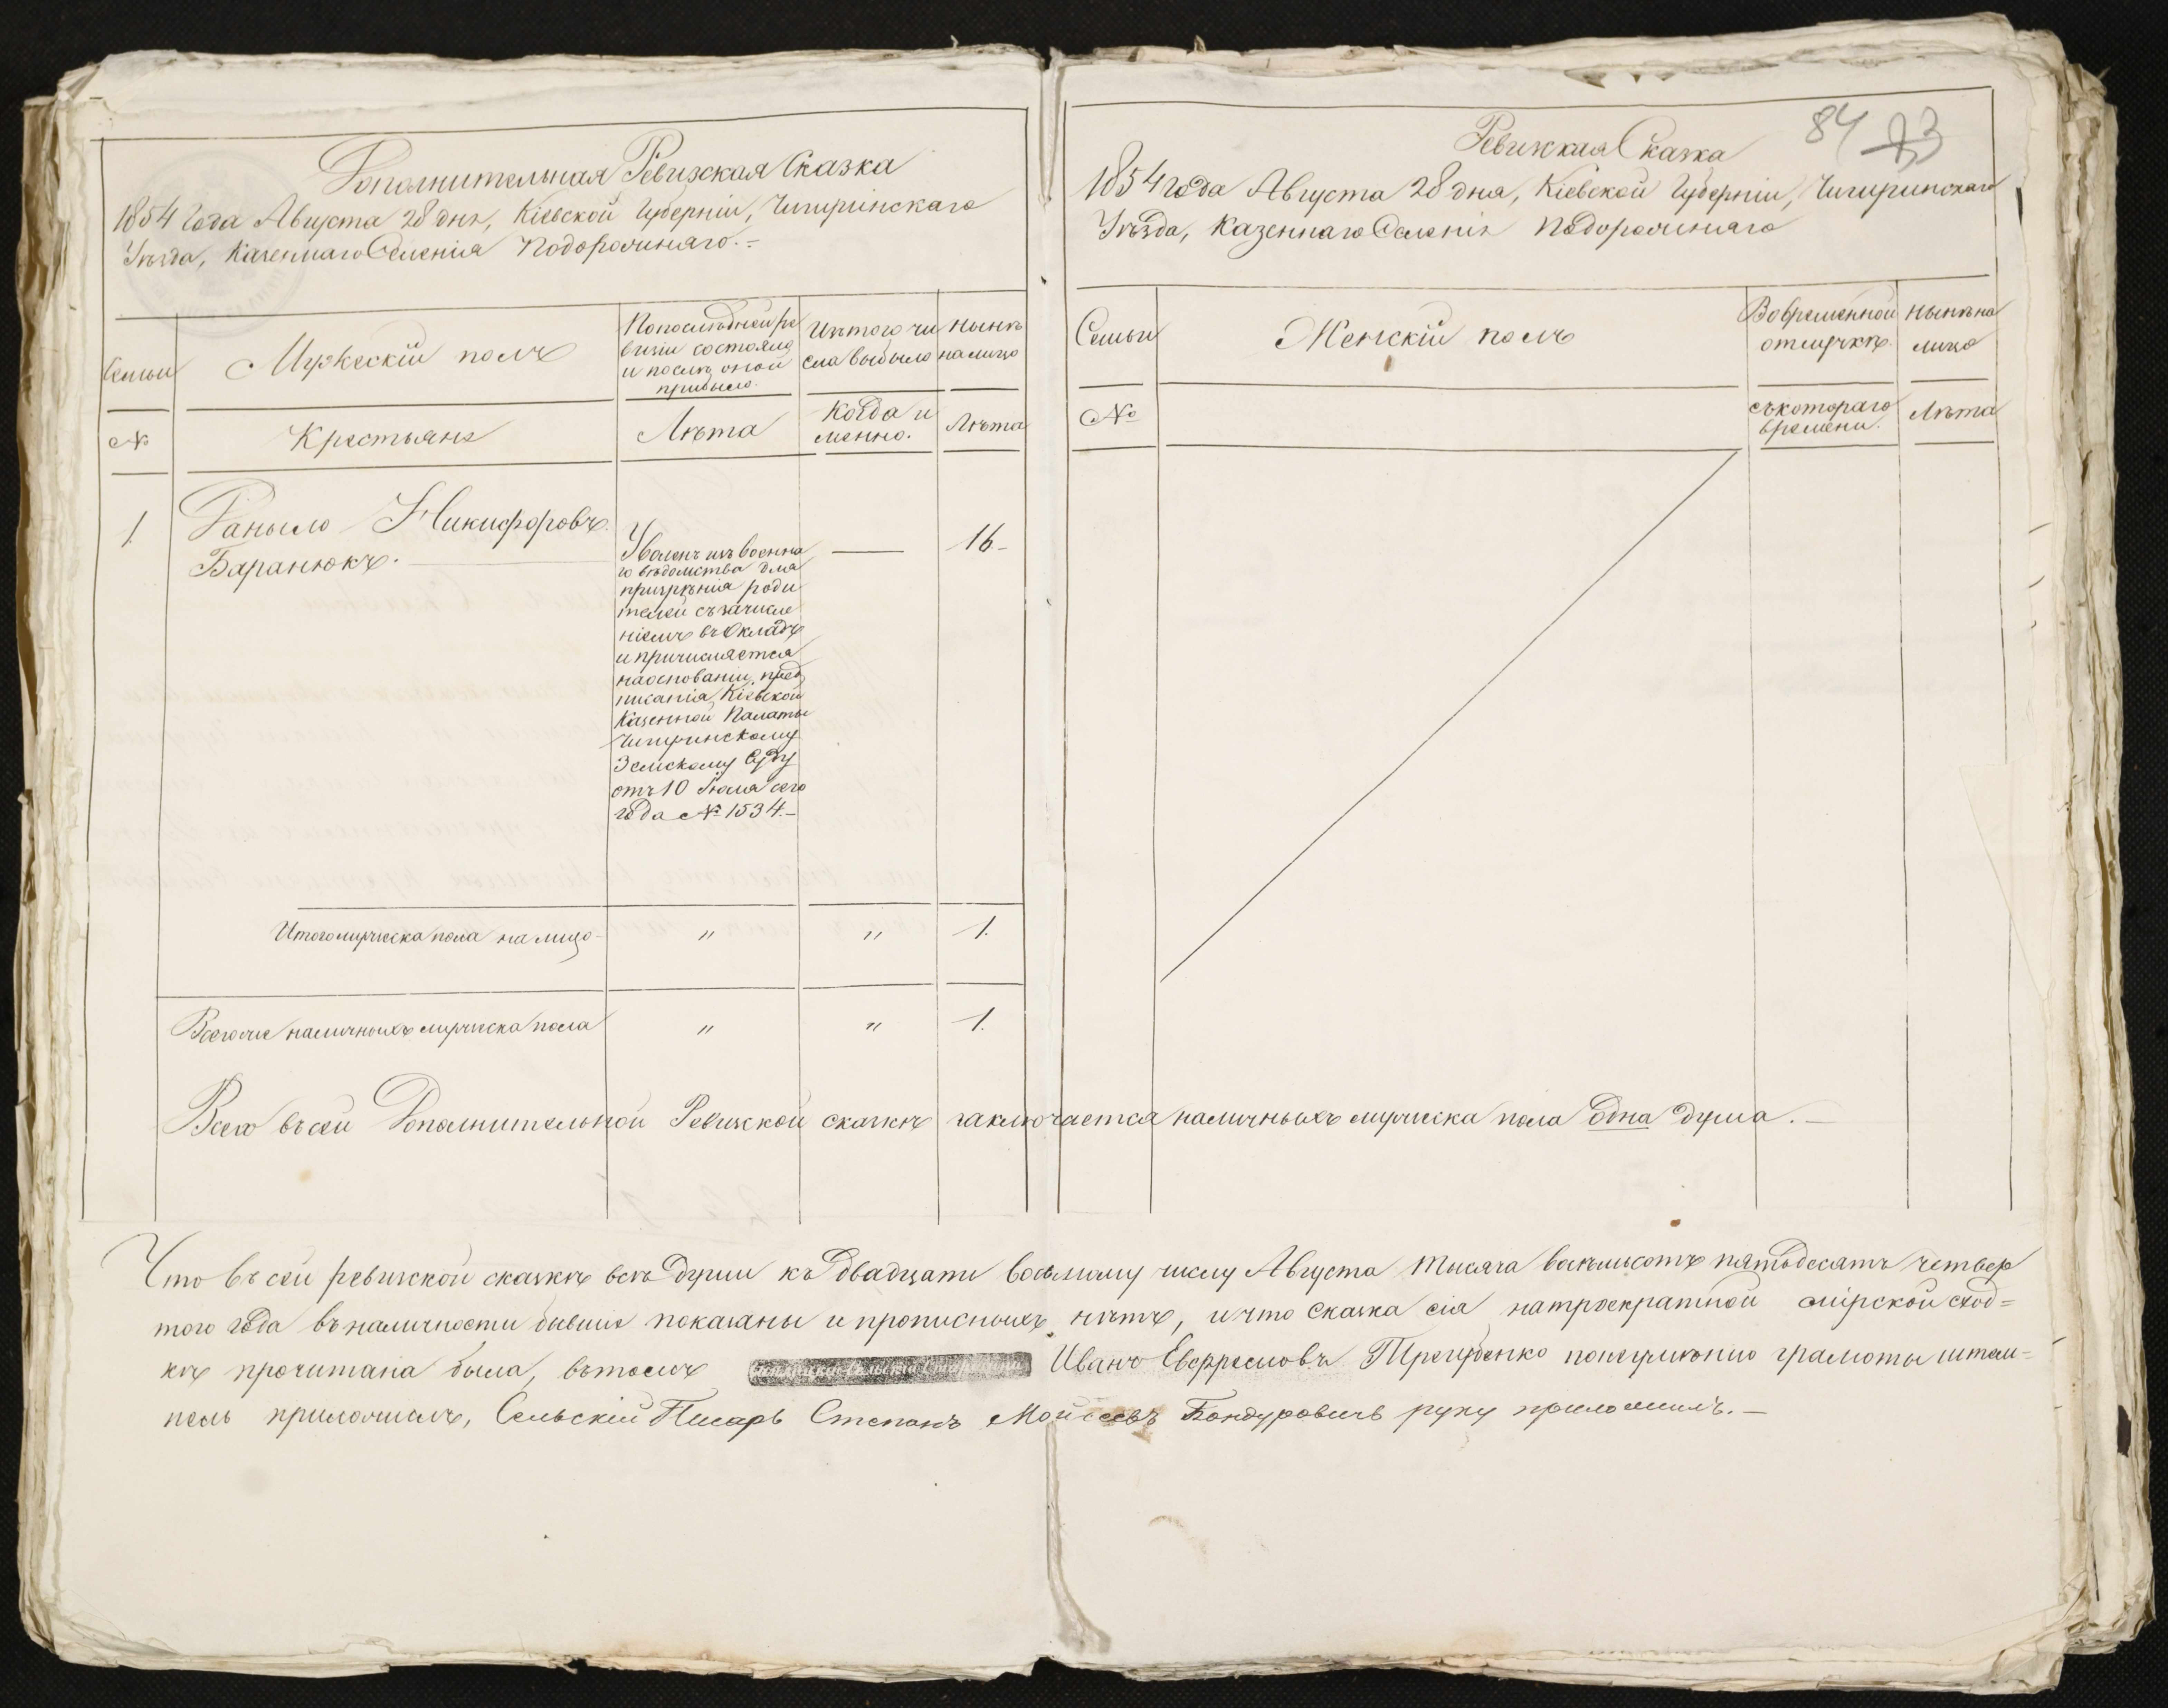 Дополнительная Ревизская Сказка
1854 Года Августа 28 дня, Кіевской Губерніи, Чигиринскаго
Уѣзда, Казеннаго Селенія Подорожняго.=
Семьи
Мужескій полъ
По последней ре
визіи состояло
и послѣ оной
прибыло.
Изтого чи
сла выбыло
Нынѣ
налицо
№
Крестьяне
Лѣта
Когда и
менно.
Лѣта
1
Даныло Никифоровъ
Баранюкъ.
Уволенъ изъ военна
го вѣдомства для
призрѣнія роди
телей съ зачисле
ніемъ въ окладъ
и причисляется
на основаніи пред
писанія Кіевской
Казенной Палаты
Чигиринскому
Земскому Суду
отъ 10 Іюля сего
года № 1534.-
16-
Итого мужеска пола на лицо-
"
"
1.
Всего же наличныхъ мужеска пола
"
"
1.
84 83
Ревизская Сказка
1854 года Августа 28 дня, Кіевской Губерніи, Чигиринскаго
Уѣзда, Казеннаго Селенія Подорожняго
Семьи
Женскій полъ
Во временной
отлучкѣ.
Нынѣ на
лицо
№
съ котораго
времени.
Лѣта
Всего въ сей Дополнительной Ревизской сказкѣ заключается наличныхъ мужеска пола одна душа.-
Что въ сей ревизской сказкѣ всѣ души къ двадцати восьмому числу Августа тысяча восемьсотъ пятьдесятъ четвер
того года въ наличности бывшіе показаны и прописныхъ нѣтъ, и что сказка сія на троекратной мірской сход=
кѣ прочитана была, въ томъ Иванъ Трегубенко понеумѣнію грамоты штем=
пель приложилъ, Сельскій Писарь Степанъ Мойсеевъ Бондуровичъ руку приложилъ.-